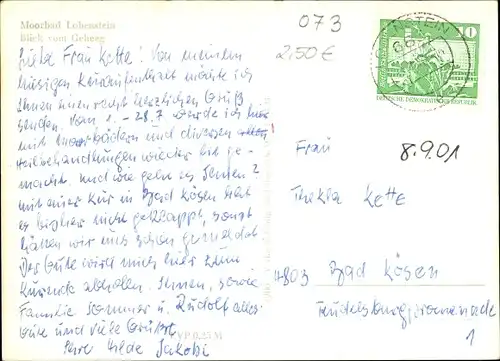 Moorbad Lobenstein
Blick vom Geheeg
073
2,50€
Liebe Frau Kette! Von meinem
hiesigen Kuraufenthalt möchte ich
Ihnen einen recht herzlichen Gruß
senden. Vom 1. - 28.7 werde ich hier
mit Moorbädern und diversen
Heilbehandlungen wieder fit ge-
macht. Und wie geht es Ihnen?
Mit einer Kur in Bad Kösen hat
es bisher nicht geklappt, sonst
hätten wir uns schon gemeldet.
Der Gute wird mich hier zum
Kurende abholen. Ihnen, sowie
Familie Sommer u. Rudolf alles
Gute und viele Grüße.
Ihre Hilde Jakobi
EVP 0,25 M
NSTEIN
10
DEUTSCHE DEMOKRATISCHE REPUBLIK
Frau
8.9.01
Thekla Kette
4803 Bad Kösen
Rudelsburgpromenade
1